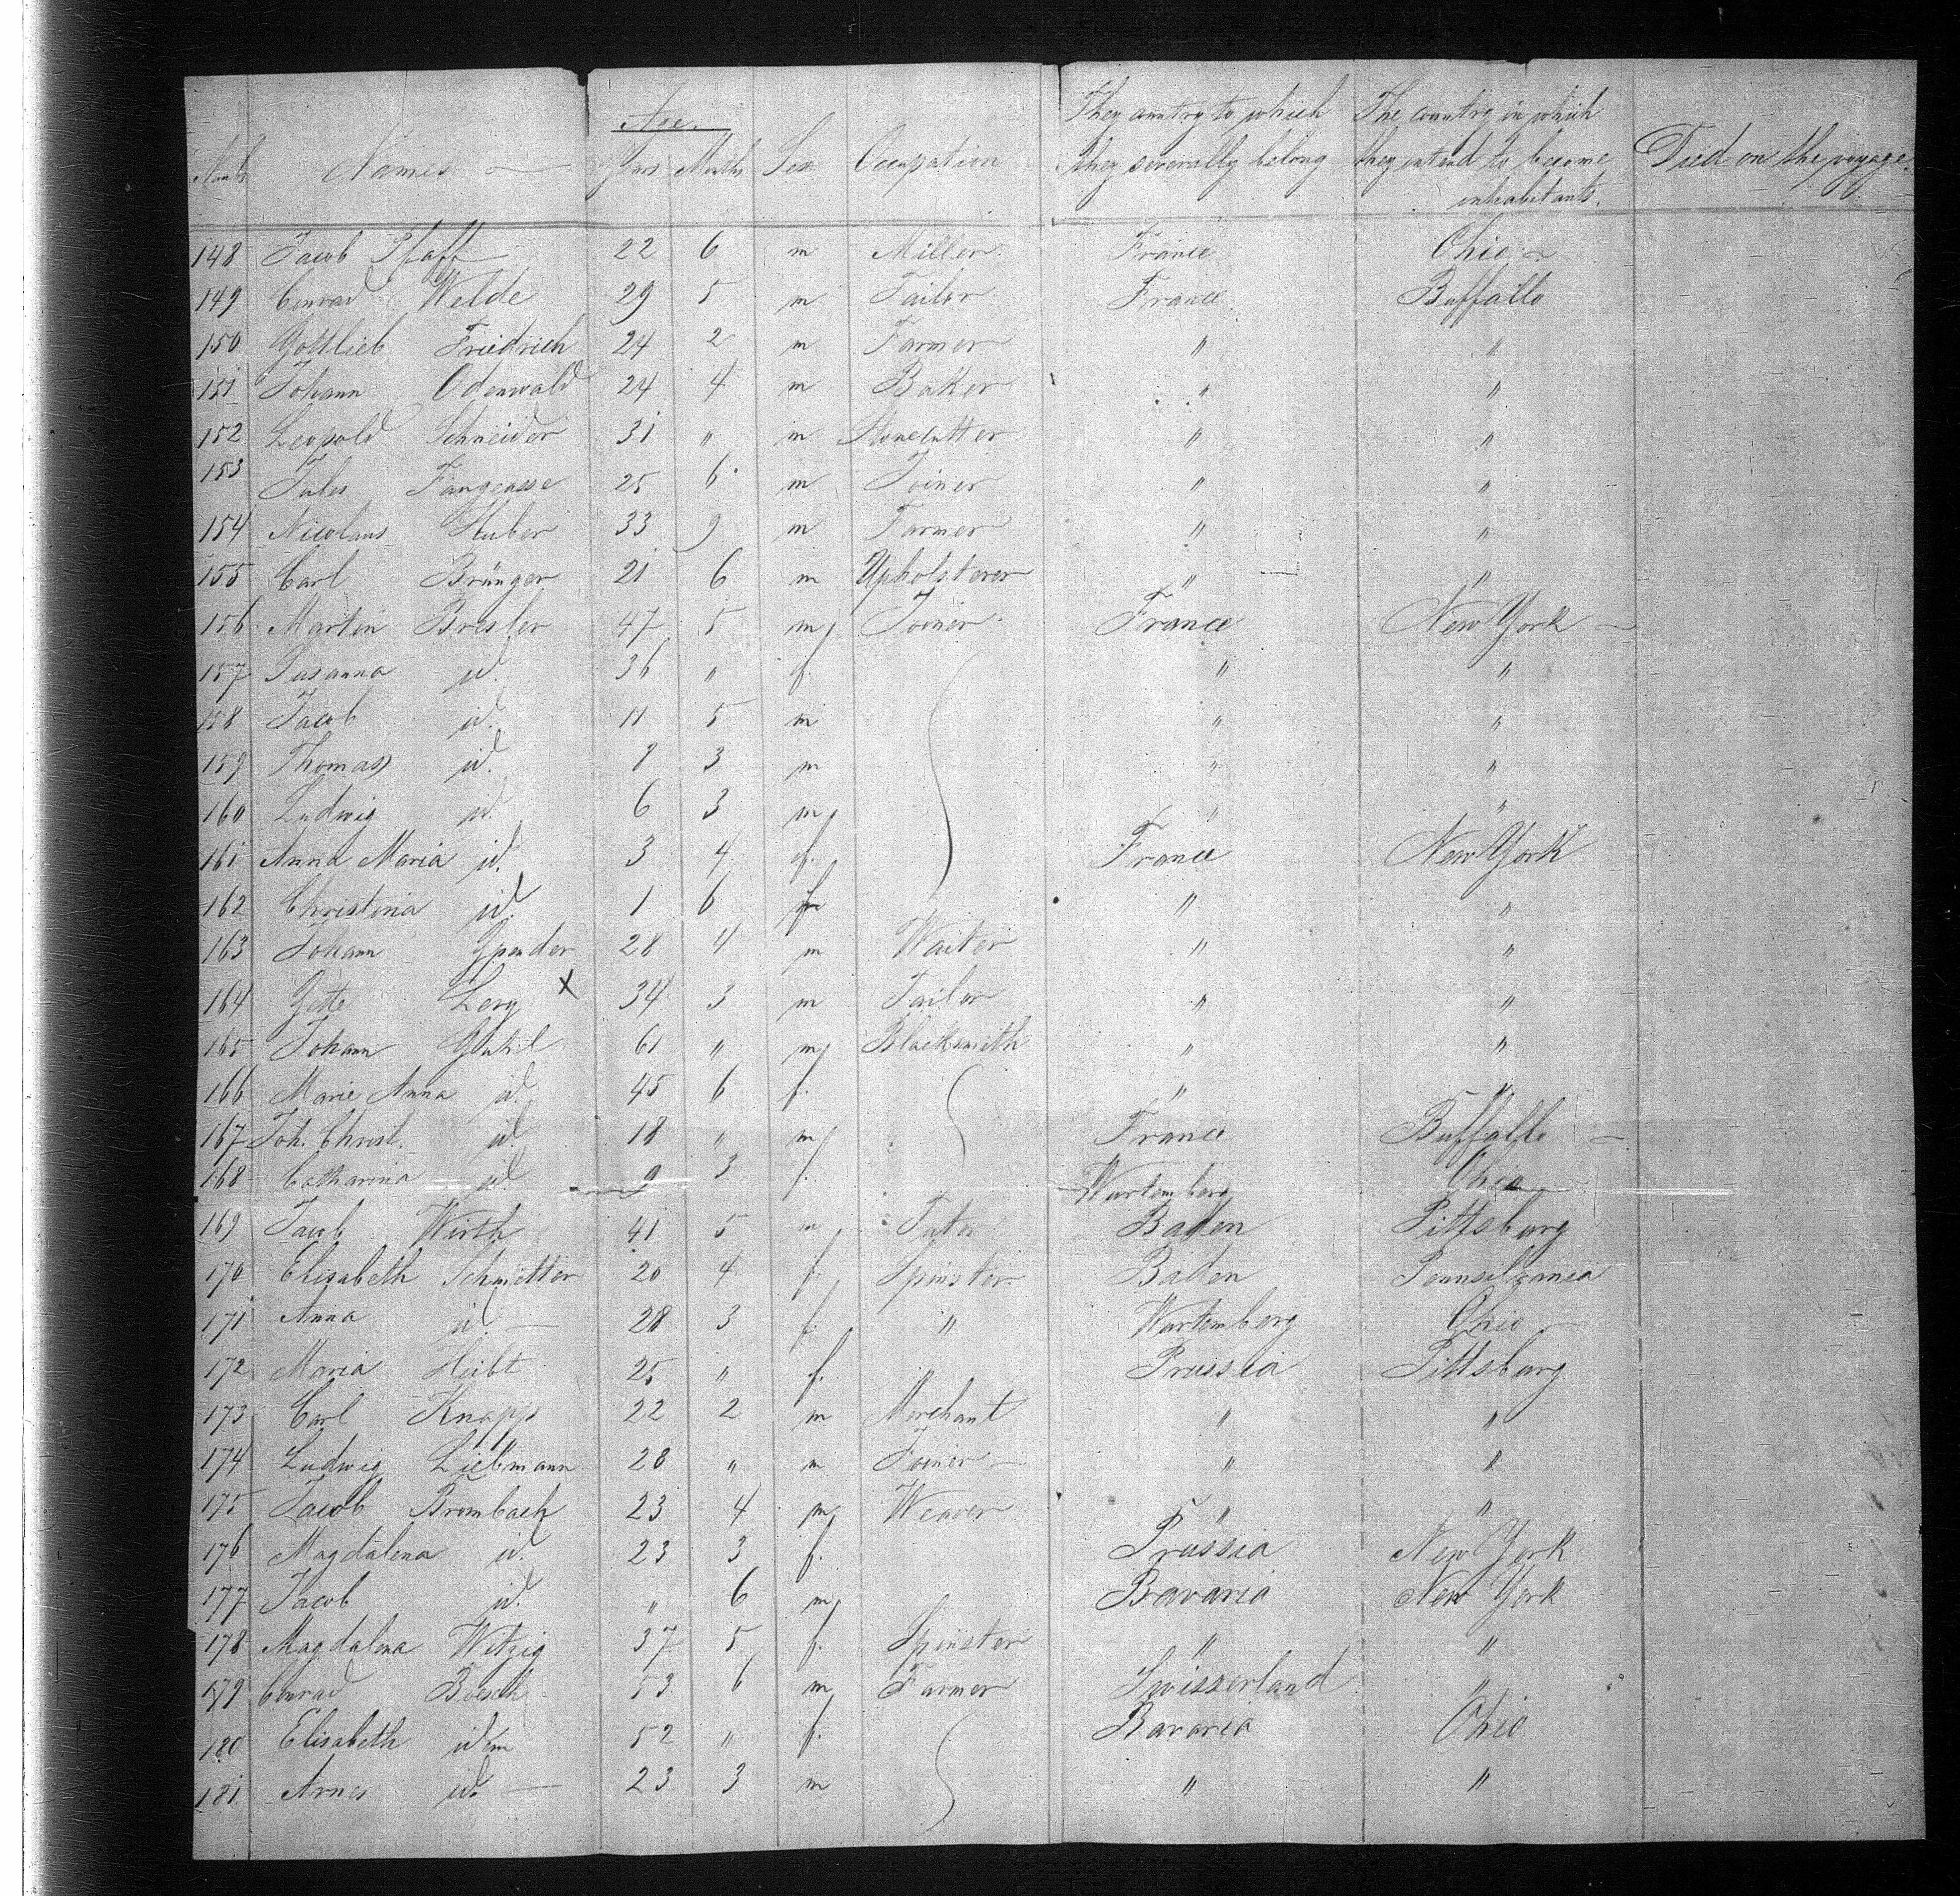 Age. They country to which The country in which
Numb Names Years Months Sex Occupation they severally belong they intend to become Died on the voyage.
inhabitants.
148 Jacob Pfaff 22 6 m Miller France Ohio
149 Conrad Welde 29 5 m Tailor France Buffallo
150 Gottlieb Friedrich 24 2 m Farmer " "
151 Johann Odenwald 24 4 m Baker " "
152 Leopold Schneider 31 " m Stonecutter " "
153 Jules Fangeasse 25 6 m Joiner " "
154 Nicolaus Huber 33 9 m Farmer " "
155 Carl Brünger 21 6 m Upholsterer " "
156 Martin Bresler 47 5 m Joiner France New York
157 Susanna id. 36 " f. " "
158 Jacob id. 11 5 m " "
159 Thomas id. 8 3 m " "
160 Ludwig id. 6 3 m " "
161 Anna Maria id. 3 4 f. France New York
162 Christina id. 1 6 f " "
163 Johann 28 4 m Waiter " "
164 Levy X 34 3 m Tailor " "
165 Johann 61 " m Blacksmith " "
166 Marie Anna id. 45 6 f. " "
167 Joh. Christ. id. 18 " m France Buffallo
168 Catharina id. 9 3 f. Wurtemberg Ohio
169 Jacob Wirth 41 5 m Baden Pittsburg
170 Elisabeth Schmetter 20 4 f. Spinster Baden Pennsilvania
171 Anna id. 28 3 f. " Wurtemberg Ohio
172 Maria 25 " f. " Prussia Pittsburg
173 Carl Knapp 22 2 m Merchant " "
174 Ludwig Liebmann 28 " m Joiner " "
175 Jacob Brombach 23 4 m Weaver " "
176 Magdalena id. 23 3 f. Prussia New York
177 Jacob id. " 6 m Bavaria New York
178 Magdalena Witzig 37 5 f. Spinster " "
179 Conrad Boesch 53 6 m Farmer Swisserland "
180 Elisabeth idem 52 " f. Bavaria Ohio
181 id. 23 3 m " "